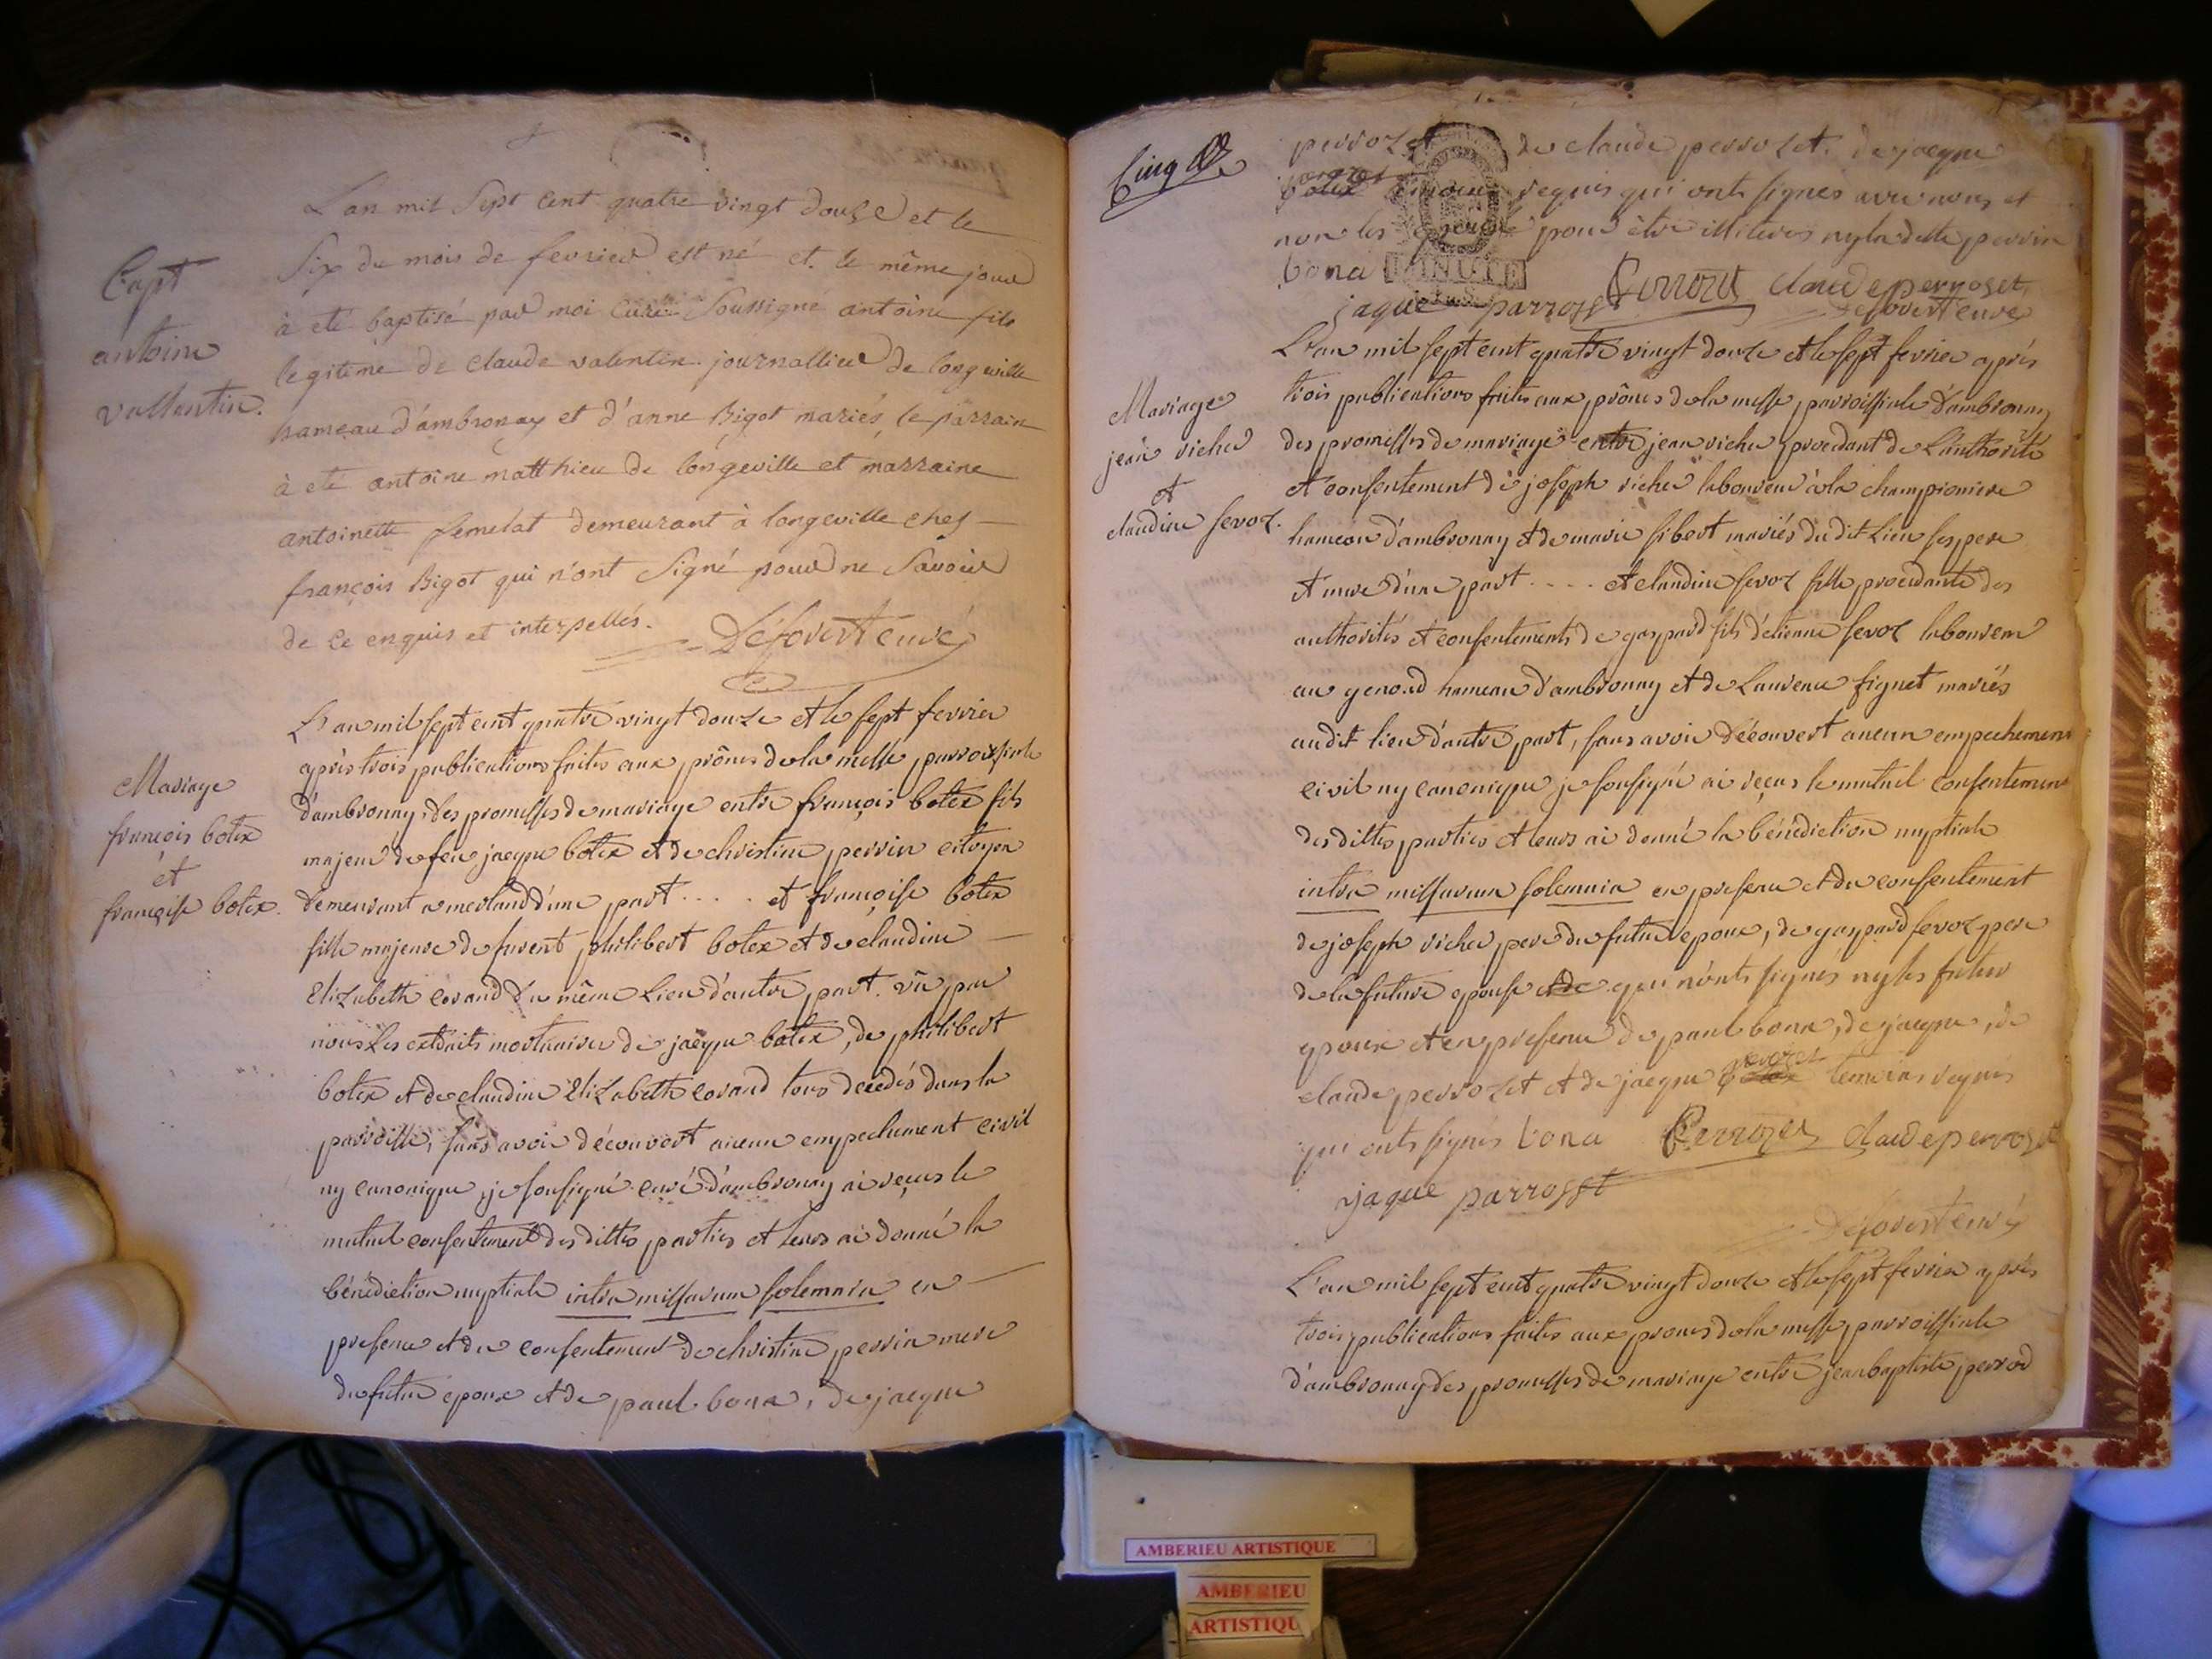 Bapt
antoine
vallentin.
L'an mil Sept Cent quatre vingt douze et le
Six du mois de fevrier est né et le même jour
à eté baptisé par moi Curé Soussigné antoine fils
legitime de claude valentin journallier de longeville
hameau d'ambronay et d'anne Bigot mariés, le parrain
à eté antoine matthieu de longeville et marraine
antoinette femelat demeurant à longeville chez
françois Bigot qui n'ont Signé pour ne Savoir
de ce enquis et interpellés.
Mariage
françois botex
et
françoise botex.
L'an mil sept cent quatre vingt douze et le sept fevrier
après trois publications faites aux prônes de la messe parroissiale
d'ambronay des promesses de mariage entre françois botex fils
majeur de feu jacque botex et de christine perrin citoyen
demeurant a merland d'une part . . . . et françoise botex
fille majeure de furent philibert botex et de claudine
Elizabeth corand du même Lieu d'autre part. vû par
nous Les extraits mortuaires de jacque botex, de philibert
botex et de claudine Elizabeth corand tous decedés dans la
parroisse, sans avoir découvert aucun empechement civil
ny canonique, je sousigné curé d'ambronay ai reçus le
mutuel consentement des dittes parties et leurs ai donné la
bénédiction nuptiale intra missarum solemnia en
presence et du consentement de christine perrin mere
du futur epoux et de paul bona, de jacque
Cinq
perrozet de claude perrozet. de jacque
perrozet botex temoins requis qui ont signés avec nous et
non les epoux pour être illiteres ny la ditte perrin
bona Perrozet claude perroset
MINUTE
jaque parrosset
Mariage
jean vicher
et
claudine servoz.
L'an mil sept cent quatre vingt douze et le sept fevrier après
trois publications faites aux prônes de la messe parroissiale d'ambronay
des promesses de mariage entre jean vicher procedant de L'authorité
et consentement de joseph vicher laboureur à la championiere
hameau d'ambronay et de marie sibert mariés du dit Lieu ses pere
et mere d'une part . . . . et claudine servoz fille procedante des
authorités et consentements de gaspard fils d'etienne servoz laboureur
au genoud hameau d'ambronay et de Laurence fignet mariés
audit lieu d'autre part, sans avoir découvert aucun empechement
civil ny canonique je sousigné ai reçus le mutuel consentement
des dittes parties et leurs ai donné la bénédiction nuptiale
intra missarum solemnia en presence et du consentement
de joseph vicher pere du futur epoux, de gaspard servoz pere
de la future epouse et de qui n'ont signés ny les futur
epoux et en presence de paul bona, de jacque, de
claude perrozet et de jacque perrozet botex temoins requis
qui ont signés bona Perrozet Claude perroset
jaque parrosset
L'an mil sept cent quatre vingt douze et le sept fevrier après
trois publications faites aux prones de la messe parroissiale
d'ambronay des promesses de mariage entre jean baptiste perrod
AMBERIEU ARTISTIQUE
AMBERIEU
ARTISTIQU